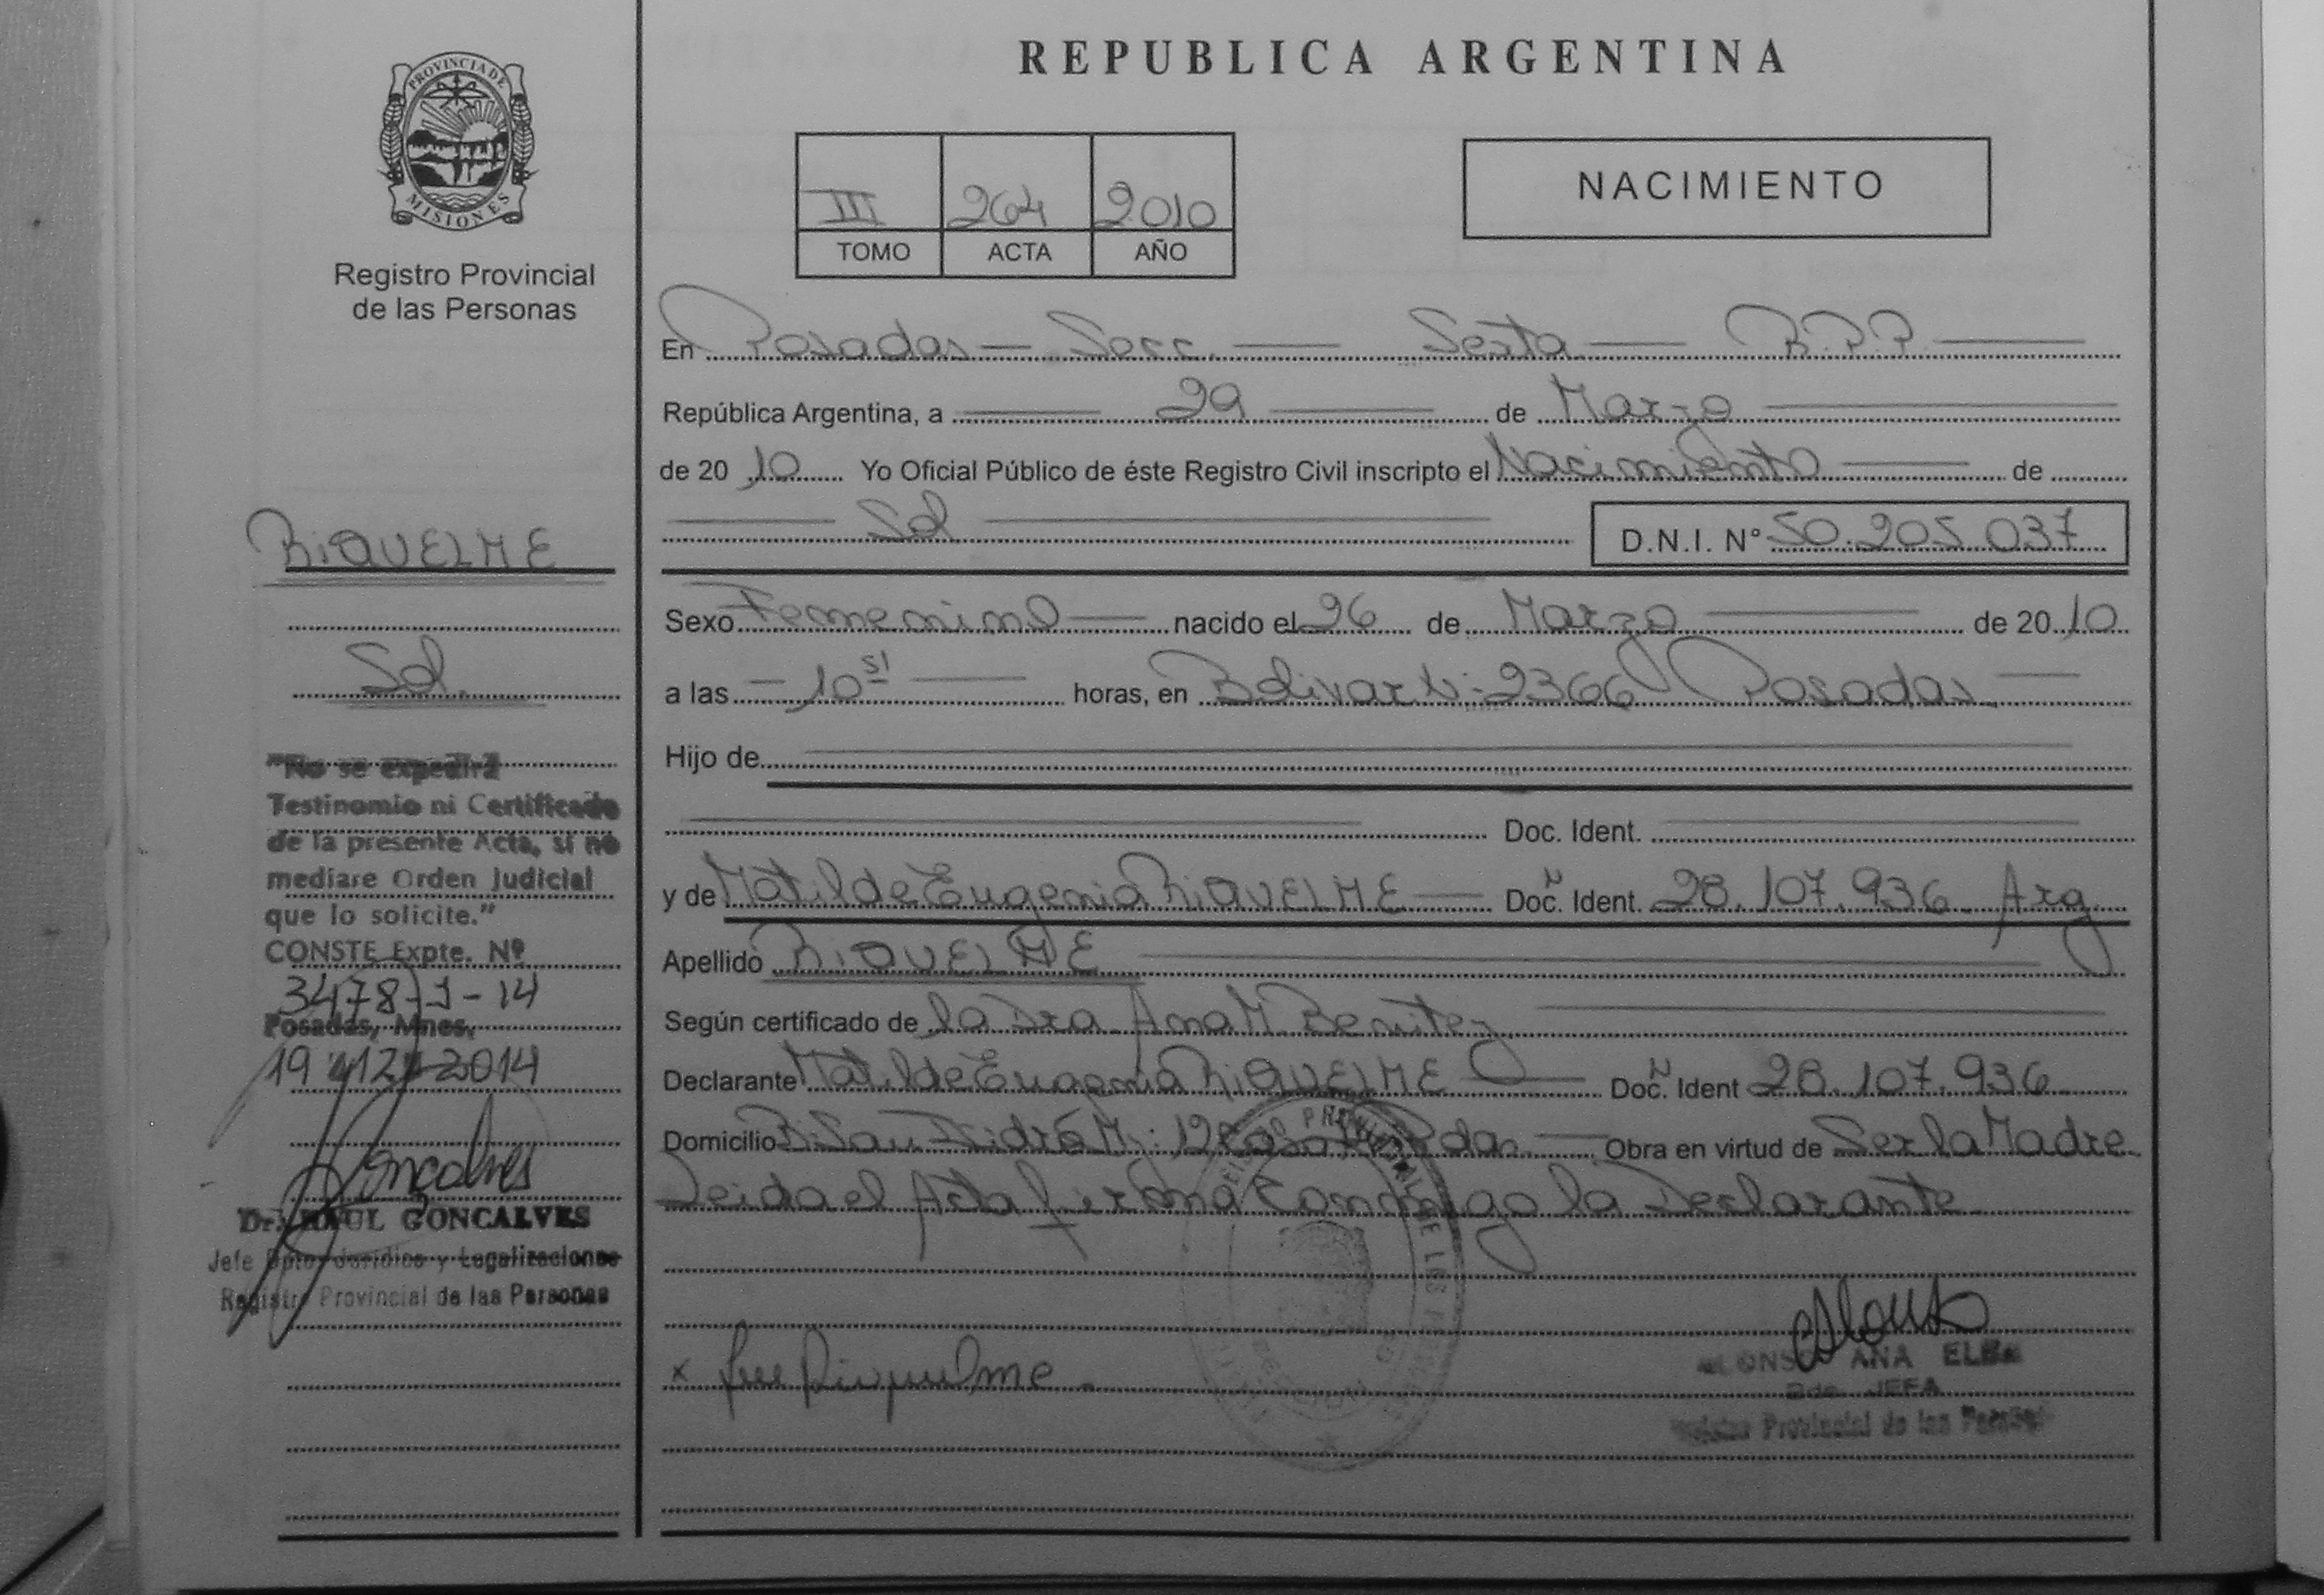 PROVINCIA DE
MISIONES
Registro Provincial
de las Personas
RIQUELME
Sol.
"No se expedirá
Testinomio ni Certificado
de la presente Acta, si no
mediare Orden Judicial
que lo solicite."
CONSTE Expte. Nº
3478-J-14
Posadas, Mnes,
19 12 2014
Goncalves
Dr. RAUL GONCALVES
Jefe Dpto. Jurídico y Legalizaciones
Registro Provincial de las Personas
REPUBLICA ARGENTINA
III 264 2010
TOMO ACTA AÑO
NACIMIENTO
En Posadas - Secc. Sexta R.P.P.
República Argentina, a 29 de Marzo
de 20 10 Yo Oficial Público de éste Registro Civil inscripto el Nacimiento de
Sol
D.N.I. N° 50.205.037
Sexo Femenino nacido el 26 de Marzo de 20 10
a las 10 51 horas, en Bolivar N: 2366 Posadas
Hijo de
Doc. Ident.
y de Matilde Eugenia RIQUELME Doc. N Ident. 28.107.936. Arg.
Apellido RIQUELME
Según certificado de la Dra. Ana M. Benitez
Declarante Matilde Eugenia RIQUELME Doc. N Ident 28.107.936
Domicilio B. San Isidro M: 12 Casa Pdas. Obra en virtud de Ser la Madre
Leida el Acta firma Conmigo la Declarante
x Riquelme
ALONSO ANA ELBA
2da. JEFA
Registro Provincial de las Personas